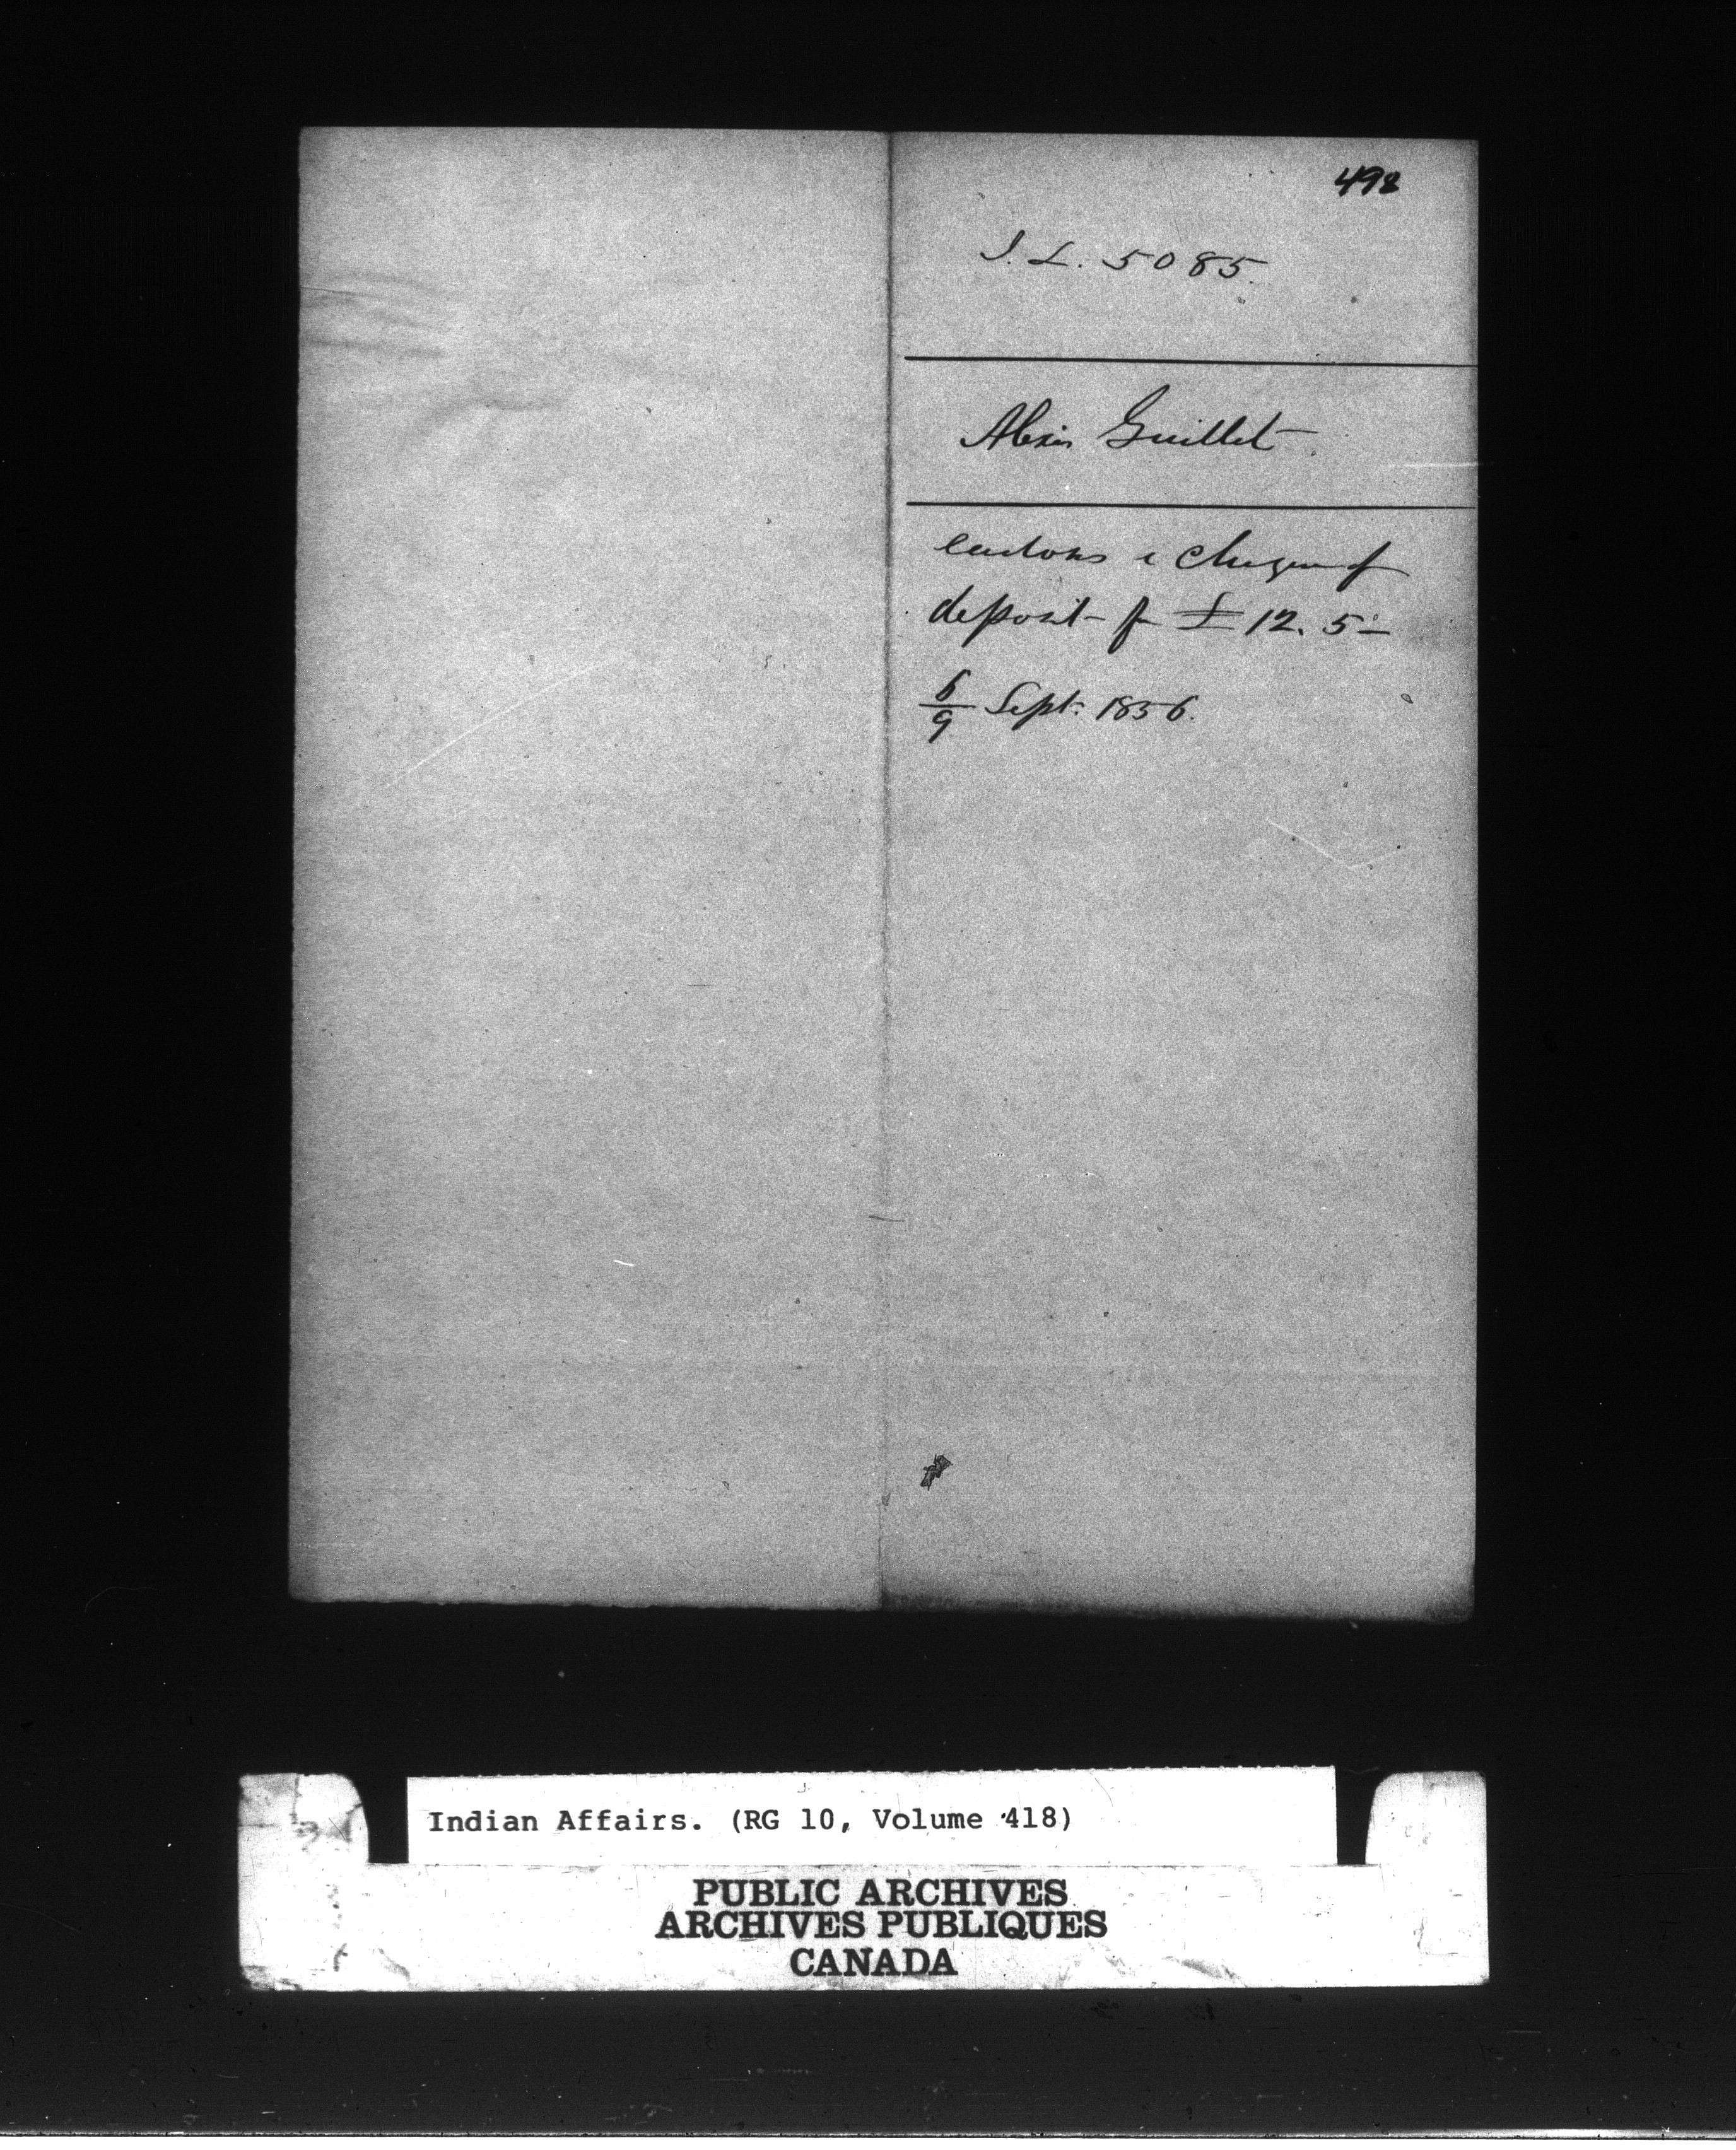 498
I. L. 5085.
Alexis Guillet
encloses a cheque of
deposit for £12. 5. –
6/9 Sept: 1856.
Indian Affairs. (RG 10, Volume 418)
PUBLIC ARCHIVES
ARCHIVES PUBLIQUES
CANADA